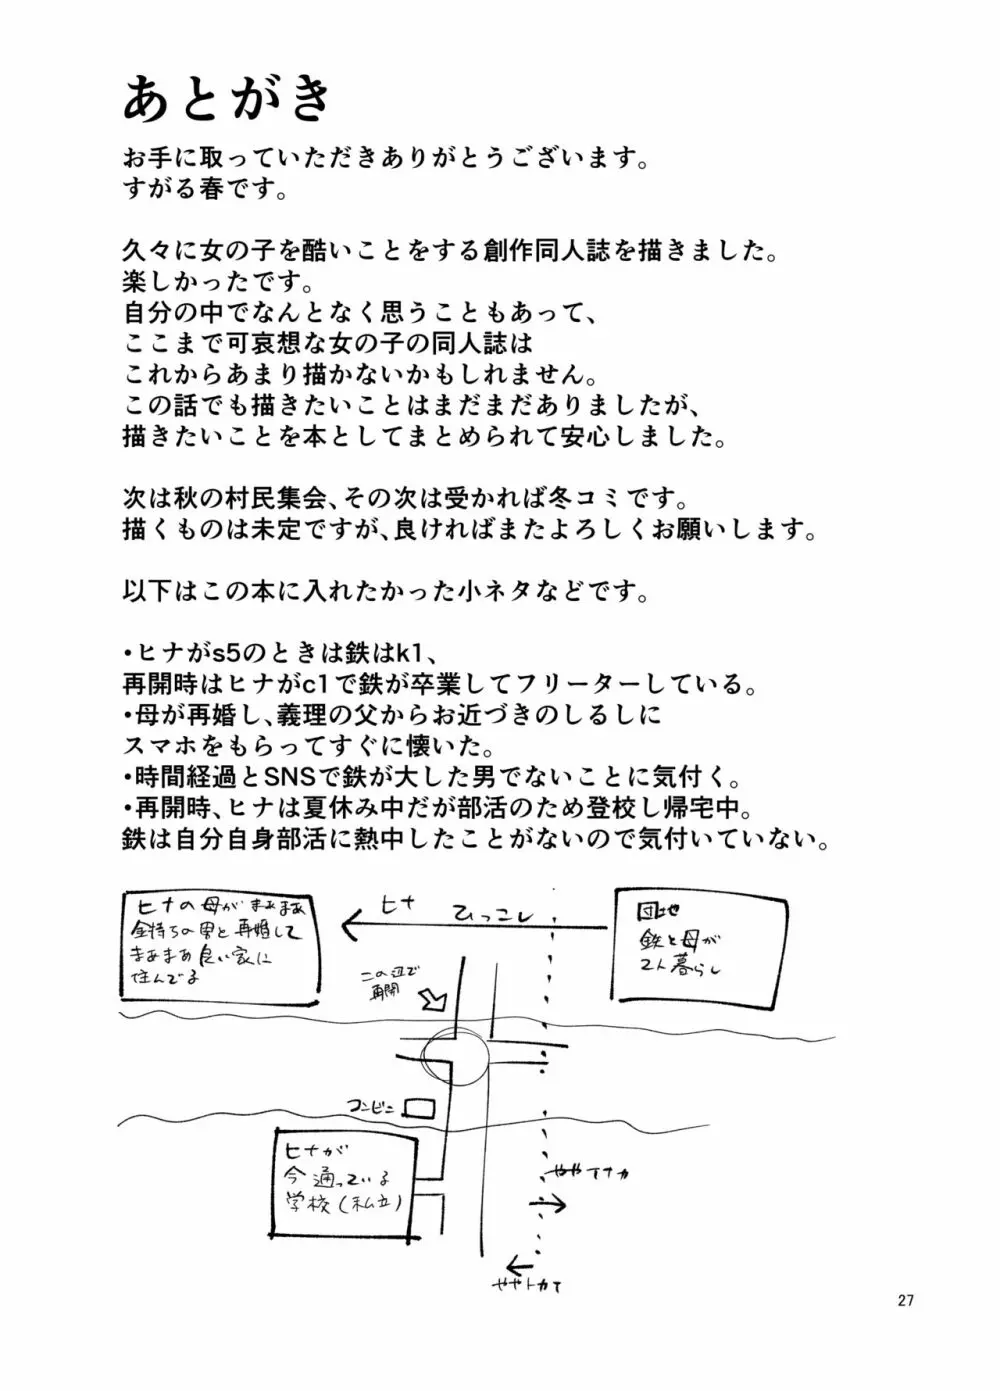 あとがき
お手に取っていただきありがとうございます。
すがる春です。
久々に女の子を酷いことをする創作同人誌を描きました。
楽しかったです。
自分の中でなんとなく思うこともあって、
ここまで可哀想な女の子の同人誌は
これからあまり描かないかもしれません。
この話でも描きたいことはまだまだありましたが、
描きたいことを本としてまとめられて安心しました。
次は秋の村民集会、その次は受かれば冬コミです。
描くものは未定ですが、良ければまたよろしくお願いします。
以下はこの本に入れたかった小ネタなどです。
・ヒナがs5のときは鉄はk1、
再開時はヒナがc1で鉄が卒業してフリーターしている。
・母が再婚し、義理の父からお近づきのしるしに
スマホをもらってすぐに懐いた。
・時間経過とSNSで鉄が大した男でないことに気付く。
・再開時、ヒナは夏休み中だが部活のため登校し帰宅中。
鉄は自分自身部活に熱中したことがないので気付いていない。
ヒナの母がまぁまぁ
金持ちの男と再婚して
まぁまぁ良い家に
住んでる
ヒナ
ひっこし
団地
鉄と母が
2人暮らし
この辺で
再開
コンビニ
ヒナが
今通っている
学校(私立)
ややイナカ
ややトカイ
27